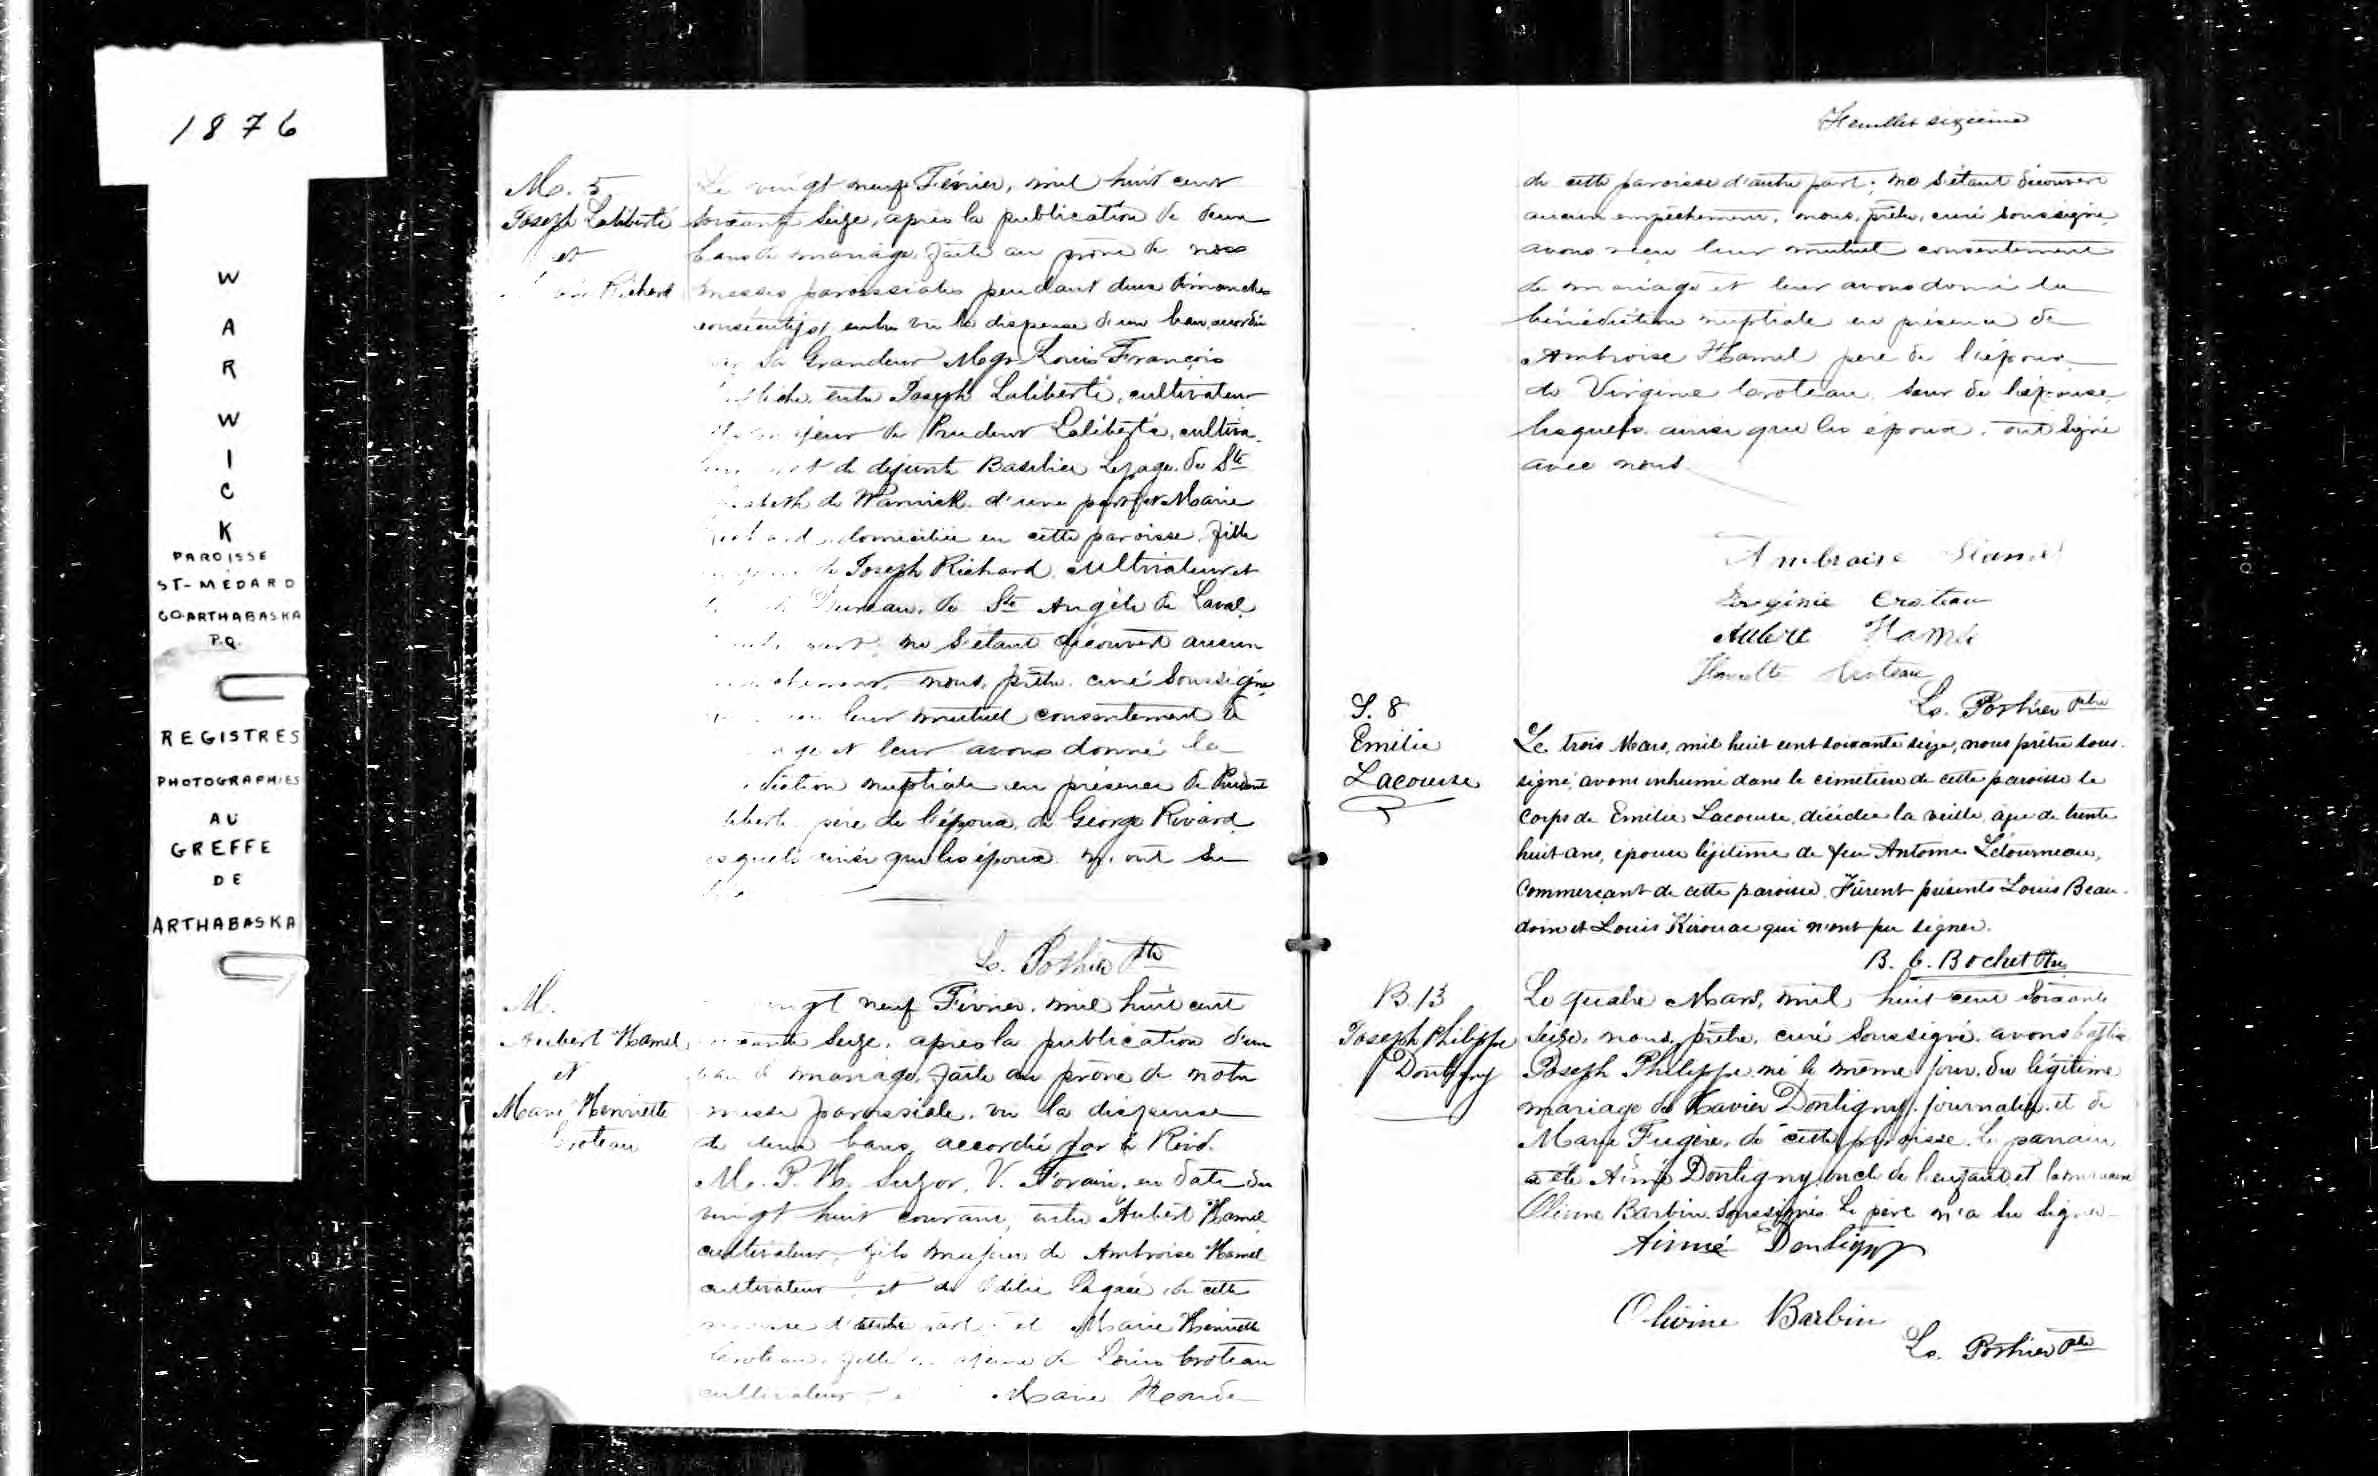 1876
W
A
R
W
I
C
K
PAROISSE
ST-MÉDARD
CO-ARTHABASKA
P.Q.
REGISTRES
PHOTOGRAPHIES
AU
GREFFE
DE
ARTHABASKA
M. 5
Joseph Laliberté
et
Richard
Le vingt neuf Février, mil huit cent
soixante seize, après la publication de deux
bans de mariage, faite au prône de nos
messes paroissiales pendant deux dimanches
consécutifs, vu la dispense d'un ban, accordée
Sa Grandeur Mgr Louis François
entre Joseph Laliberté, cultivateur
majeur de Prudent Laliberté, cultiva-
et de défunte Basilice Lepage, de Ste
de Warwick, d'une part, et Marie
domiciliée en cette paroisse, fille
de Joseph Richard, cultivateur et
Dureau, de Ste Angèle de Laval
part; ne s'étant découvert aucun
nous, prêtre, curé soussigné,
leur mutuel consentement de
et leur avons donné la
nuptiale en présence de Prudent
père de l'époux, de George Rivard,
lesquels ainsi que les époux n'ont su
Ls. Pothier Ptre
M.
Aubert Hamel
et
Marie Henriette
Croteau
vingt neuf Février, mil huit cent
seize, après la publication d'un
ban de mariage, faite au prône de notre
messe paroissiale, vu la dispense
de deux bans, accordée par le Révd.
M. P. H. Suzor, V. Forain, en date du
vingt huit courant, entre Aubert Hamel
cultivateur, fils majeur de Ambroise Hamel
cultivateur et de Odélie Lagacé, de cette
d'une part et Marie Henriette
Croteau, fille mineure de Louis Croteau
cultivateur Marie Houde
Feuillet sixième
de cette paroisse d'autre part; ne s'étant découvert
aucun empêchement, nous, prêtre, curé soussigné,
avons reçu leur mutuel consentement
de mariage et leur avons donné la
bénédiction nuptiale en présence de
Ambroise Hamel père de l'époux,
de Virginie Croteau, sœur de l'épouse,
lesquels, ainsi que les époux, ont signé
avec nous.
Ambroise Hamel
Virginie Croteau
Aubert Hamel
Croteau
Ls. Pothier Ptre
S. 8
Emélie
Lacourse
Le trois Mars, mil huit cent soixante seize, nous prêtre sous-
signé, avons inhumé dans le cimetière de cette paroisse le
corps de Emélie Lacourse, décédée la veille, âgée de trente
huit ans, épouse légitime de feu Antoine Létourneau,
commerçant de cette paroisse. Furent présents Louis Beau-
doin et Louis Kirouac qui n'ont pu signer.
B. C. Bochet Ptre
B. 13
Joseph Philippe
Dontigny
Le quatre Mars, mil huit cent soixante
seize, nous, prêtre, curé soussigné, avons baptisé
Joseph Philippe né le même jour, du légitime
mariage de Xavier Dontigny, journalier, et de
Marie Fugère, de cette paroisse. Le parrain
a été Aimé Dontigny, oncle de l'enfant, et la marraine
Olivine Barbin, soussignés. Le père n'a su signer.
Aimé Dontigny
Olivine Barbin
Ls. Pothier Ptre